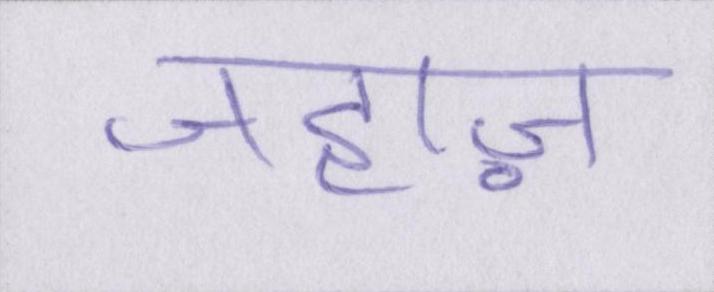 जहाज़